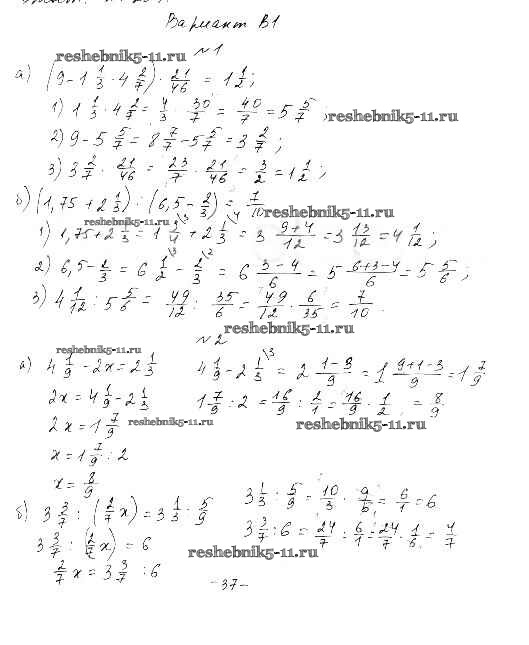 Вариант В1
reshebnik5-11.ru
№1
а) (9 - 1 1/3 · 4 2/7) · 21/46 = 1 1/2;
1) 1 1/3 · 4 2/7 = 4/3 · 30/7 = 40/7 = 5 5/7;
reshebnik5-11.ru
2) 9 - 5 5/7 = 8 7/7 - 5 5/7 = 3 2/7;
3) 3 2/7 · 21/46 = 23/7 · 21/46 = 3/2 = 1 1/2;
б) (1,75 + 2 1/3) : (6,5 - 2/3) = 7/10
reshebnik5-11.ru
reshebnik5-11.ru
1) 1,75 + 2 1/3 = 1 3/4 \3 + 2 1/3 \4 = 3 9+4/12 = 3 13/12 = 4 1/12;
2) 6,5 - 2/3 = 6 1/2 \3 - 2/3 \2 = 6 3-4/6 = 5 6+3-4/6 = 5 5/6;
3) 4 1/12 : 5 5/6 = 49/12 : 35/6 = 49/12 · 6/35 = 7/10.
reshebnik5-11.ru
№2
reshebnik5-11.ru
а) 4 1/9 - 2x = 2 1/3
4 1/9 - 2 1/3 \3 = 2 1-3/9 = 1 9+1-3/9 = 1 7/9
2x = 4 1/9 - 2 1/3
1 7/9 : 2 = 16/9 : 2/1 = 16/9 · 1/2 = 8/9
2x = 1 7/9
reshebnik5-11.ru
reshebnik5-11.ru
x = 1 7/9 : 2
x = 8/9
б) 3 3/7 : (2/7 x) = 3 1/3 · 5/9
3 1/3 : 5/9 = 10/3 · 9/5 = 6/1 = 6
3 3/7 : (2/7 x) = 6
3 3/7 : 6 = 24/7 : 6/1 = 24/7 · 1/6 = 4/7
reshebnik5-11.ru
2/7 x = 3 3/7 : 6
-37-